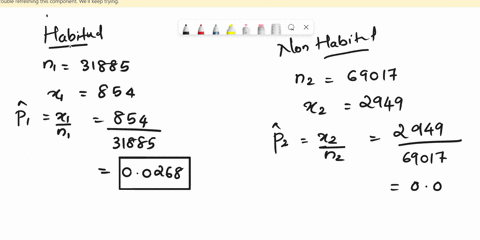 rouble refreshing this component. We'll keep trying.
Habitud
n₁ = 31885
x₁ = 854
p̂₁ = x₁/n₁ = 854/31885
= 0.0268
Non Habitul
n₂ = 69017
x₂ = 2949
p̂₂ = x₂/n₂ = 2949/69017
= 0.0